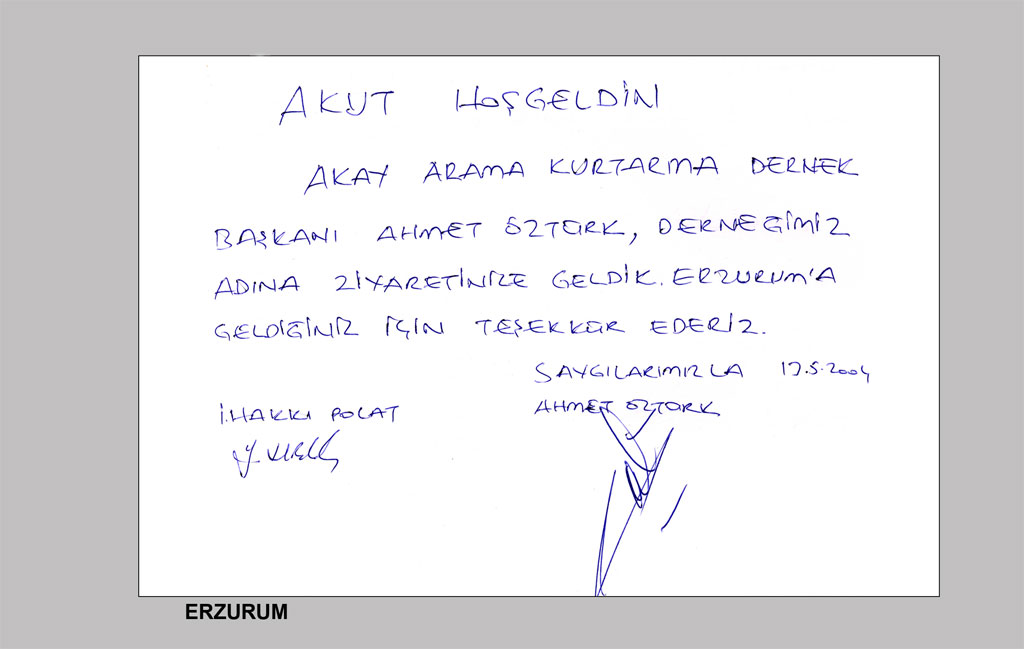 AKUT HOŞGELDİN
AKAY ARAMA KURTARMA DERNEK
BAŞKANI AHMET ÖZTÜRK, DERNEĞİMİZ
ADINA ZİYARETİNİZE GELDİK. ERZURUM'A
GELDİĞİNİZ İÇİN TEŞEKKÜR EDERİZ.
SAYGILARIMIZLA 17.5.2004
İ.HAKKI POLAT
AHMET ÖZTÜRK
ERZURUM